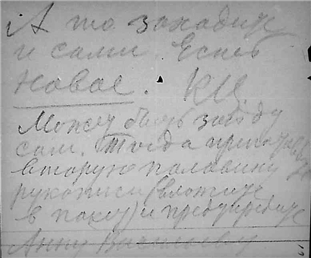 А то заходите
и сами. Есть
новое. КЧ
Может быть зайду
сам. Тогда приготовьте
вторую половину
рукописи (вложите
в пакет) и предупредите
Анну Васильевну